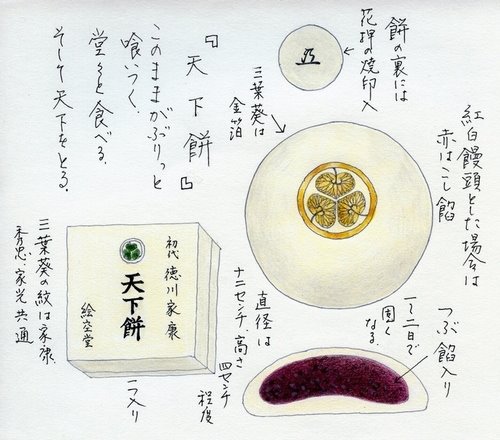 『天下餅』
このままがぶりっと
喰いつく。
堂々と食べる。
そして天下をとる。
餅の裏には
花押の焼印入
三葉葵は
金箔
紅白饅頭とした場合は
赤はこし餡
つぶ餡入り
一~二日で
固く
なる
直径は
十二センチ、高さ
四センチ
程度
初代 徳川家康
天下餅
絵空堂
一つ入り
三葉葵の紋は家康、
秀忠、家光 共通